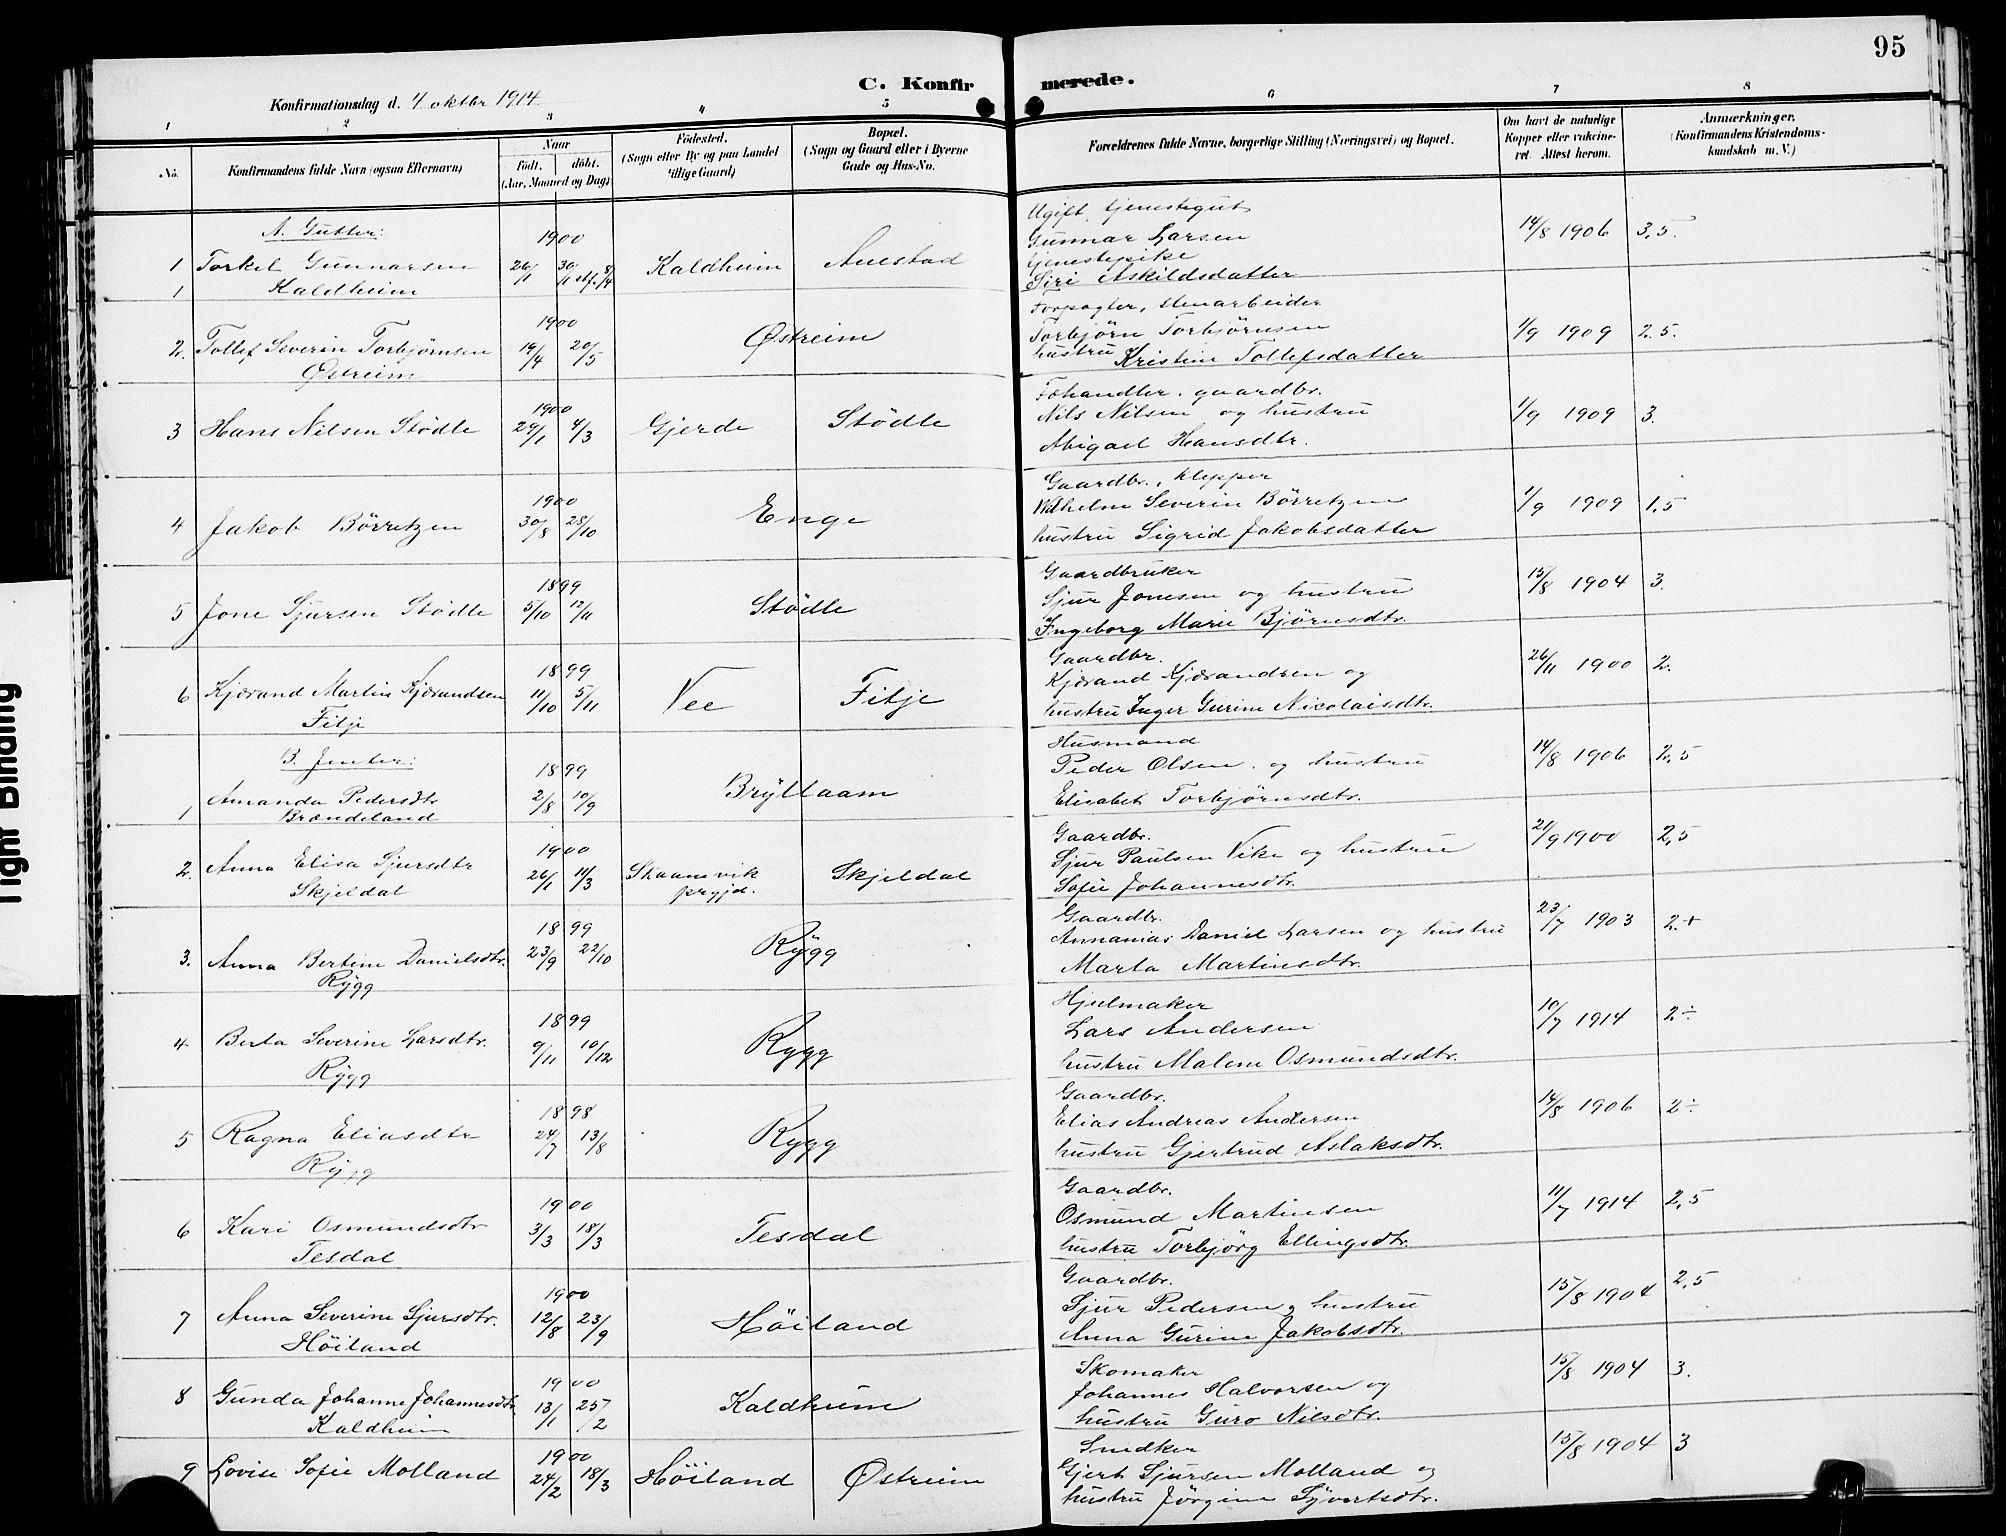 95
C. Konfirmerede.
Konfirmationsdag d. 4 oktbr 1914.
1 2 3 4 5 6 7 8
No. Konfirmandens fulde Navn (ogsaa Efternavn)
Naar
født. døbt.
(Aar, Maaned og Dag)
Fødested.
(Sogn eller By og paa Landet
tillige Gaard)
Bopæl.
(Sogn og Gaard eller i Byerne
Gade og Hus-No.
Forældrenes fulde Navne, borgerlige Stilling (Næringsvei) og Bopæl.
Om havt de naturlige
Kopper eller vakcine-
ret Attest herom.
Anmærkninger.
(Konfirmandens Kristendoms-
kundskab m. V.)
A. Gutter:
1 Torkel Gunnarsen
1 Kaldheim
1900
26/1 30/1 stf. 8/4
Kaldheim Auestad
Ugift tjenestegut
Gunnar Larsen
tjenestepike
Siri Askildsdatter
14/8 1906 3,5.
2. Tollef Severin Torbjørnsen
Østreim
1900
19/4 20/5
Østreim
Forpagter, stenarbeider
Torbjørn Torbjørnsen
hustru Kristine Tollefsdatter
1/9 1909 2.5.
3 Hans Nilsen Stödle
1900
29/1 4/3
Gjerde Stödle
Fehandler. gaardbr.
Nils Nilsen og hustru
Abigael Hansdtr.
1/9 1909 3.
4 Jakob Börretzen
1900
30/8 28/10
Enge
Gaardbr., klepper
Wilhelm Severin Börretzen
hustru Sigrid Jakobsdatter
1/9 1909 1,5
5 Jone Sjursen Stödle
1899
5/10 12/11
Stödle
Gaardbruker
Sjur Jonesen og hustru
Ingeborg Marie Bjørnsdtr.
15/8 1904 3.
6 Kjærand Martin Kjærandsen
Fitje
1899
11/10 5/11
Vee Fitje
Gaardbr.
Kjærand Kjærandsen og
hustru Inger Gurine Nicolaisdtr.
26/11 1900 2.
B. Jenter:
1 Amanda Pedersdtr
Brændeland
1899
2/8 10/9
Bryllaam
Husmand
Peder Olsen og hustru
Elisabet Torbjörnsdtr.
14/8 1906 2,5
2. Anna Elisa Sjursdtr
Skjeldal
1900
26/1 11/3
Skaanevik
prgjd.
Skjeldal
Gaardbr.
Sjur Paulsen Vike og hustru
Sofie Johannesdtr.
21/9 1900 2,5
3. Anna Bertine Danielsdtr.
Rygg
1899
23/9 22/10
Rygg
Gaardbr.
Annanias Daniel Larsen og hustru
Marta Martinsdtr.
23/7 1903 2.+
4 Berta Severine Larsdtr.
Rygg
1899
9/11 10/12
Rygg
Hjulmaker
Lars Andersen
hustru Malene Osmundsdtr.
10/7 1914 2÷
5 Ragna Eliasdtr
Rygg
1898
24/7 13/8
Rygg
Gaardbr.
Elias Andreas Andersen
hustru Gjertrud Aslaksdtr.
14/8 1906 2÷
6 Kari Osmundsdtr
Tesdal
1900
3/3 18/3
Tesdal
Gaardbr.
Osmund Martinsen
hustru Torbjörg Ellingsdtr.
11/7 1914 2,5
7 Anna Severine Sjursdtr.
Höiland
1900
12/8 23/9
Höiland
Gaardbr.
Sjur Pedersen og hustru
Anna Gurine Jakobsdtr.
15/8 1904 2,5
8 Gunda Johanne Johannesdtr.
Kaldheim
1900
13/1 25/2
Kaldheim
Skomaker
Johannes Halvorsen og
hustru Guro Nilsdtr.
15/8 1904 3.
9 Lovise Sofie Molland
1900
24/2 18/3
Höiland Østreim
Snedker
Gjert Sjursen Molland og
hustru Jörgine Syvertsdtr.
15/8 1904 3
Tight Binding